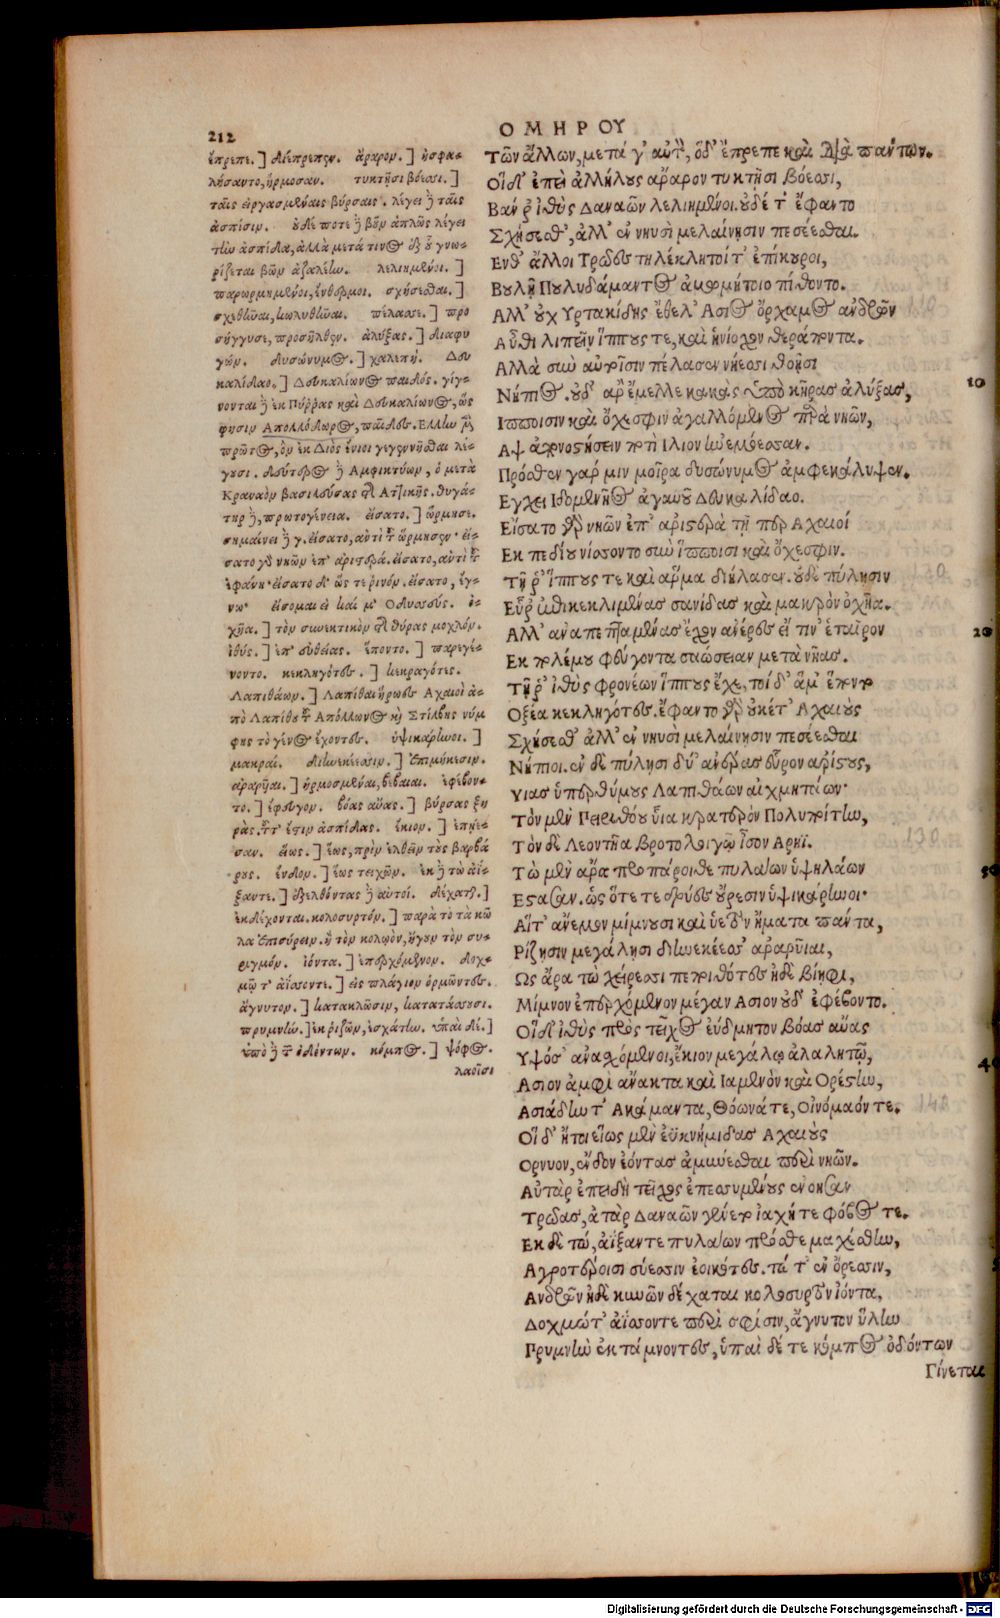 212
ΟΜΗΡΟΥ
ἔπρεπε.] διέπρεπεν. ἄραρον.] ἠσφα-
λήσαντο, ἥρμοσαν. τυκτῇσι βόεσσι.]
ταῖς εἰργασμέναις βύρσαις. λέγει ἢ ταῖς
ἀσπίσιν. οὐδέ ποτε ἢ βοῦν ἁπλῶς λέγει
τὴν ἀσπίδα, ἀλλὰ μετά τινος ἐξ οὗ γνω-
ρίζεται βῶν ἀζαλέην. λελιημένοι.]
παρωρμημένοι, ἔνθερμοι. σχήσεσθαι.]
σχεθῆναι, κωλυθῆναι. πέλασσε.] προ
σήγγισε, προσῆλθεν. ἀλύξας.] διαφυ
γών. δυσώνυμος.] χαλεπή. Δευ
καλίδαο.] Δευκαλίωνος παιδός. γίγ-
νονται ἢ ἐκ Πύρρας καὶ Δευκαλίωνος, ὥς
φησιν Απολλόδωρος, παῖδες. Ελλην μὲν
πρῶτος, ὃν ἐκ Διὸς ἔνιοι γεγεννῆσθαι λέ-
γουσι. δεύτερος ἢ Αμφικτύων, ὁ μετὰ
Κραναὸν βασιλεύσας τῆς Αττικῆς. θυγά-
τηρ ἢ, πρωτογένεια. εἴσατο.] ὥρμησε.
σημαίνει ἢ γ. εἴσατο, αὐτὶ τοῦ ὥρμησεν· εἴ-
σατο γὸ νηῶν ἐπ' ἀριστερά. εἴσατο, αὐτὶ τοῦ
ἐφάνη· εἴσατο δ' ὥς τε ῥινόν. εἴσατο, ἔγ-
νω· εἴσομαι εἰ καί μ' Οδυσσεύς. ὀ-
χῆα.] τὸν συνεκτικὸν τῆς θύρας μοχλόν.
ἰθύς.] ἐπ' εὐθείας. ἕποντο.] παρεγέ-
νοντο. κεκληγότες.] κεκραγότες.
Λαπιθάων.] Λαπίθαι ἥρωες Αχαιοὶ ἀ-
πὸ Λαπίθου τοῦ Απόλλωνος καὶ Στίλβης νύμ
φης τὸ γένος ἔχοντες. ὑψικάρηνοι.]
μακραί. διηνεκέεσσιν.] ἐπιμήκεσιν.
ἀραρῆαι.] ἡρμοσμέναι, βέβαιαι. ἐφέβον-
το.] ἔφευγον. βόας αὔας.] βύρσας ξη
ρὰς. τουτέστιν ἀσπίδας. ἔκιον.] ἐπῄε-
σαν. εἵως.] ἕως, πρὶν ἐλθεῖν τοὺς βαρβά
ρους. ἔνδον.] ἕως τειχῶν. ἐκ ἢ τὼ ἀΐ-
ξαντε.] ἐξελθόντας ἢ αὐτοί. δέχατ.]
ἐκδέχονται. κολοσυρτόν.] παρὰ τὸ τὰ κῶ
λα ἐπισύρειν. ἢ τὸν κολῳὸν, ἤγουν τὸν συ-
ριγμόν. ἰόντα.] ἐπερχόμενον. δοχ-
μώ τ' ἀΐσσοντε.] εἰς πλάγιον ὁρμῶντες.
ἄγνυτον.] κατακλῶσιν, κατατάσσουσι.
πρυμνήν.] ἐκ ριζῶν, ἐσχάτην. ὑπαὶ δέ.]
ὑπὸ ἢ τῶν ὀδόντων. κόμπος.] ψόφος.
λαοῖσι
Τῶν ἄλλων, μετά γ' αὐτὸν, ὁ δ' ἔπρεπε καὶ διὰ πάντων.
Οἳ δ' ἐπεὶ ἀλλήλους ἄραρον τυκτῇσι βόεσσι,
Βάν ῥ' ἰθὺς Δαναῶν λελιημένοι. οὐδέ τ' ἔφαντο
Σχήσεσθ', ἀλλ' ἐν νηυσὶ μελαίνῃσιν πεσέεσθαι.
Ενθ' ἄλλοι Τρῶες τηλέκλητοί τ' ἐπίκουροι,
Βουλῇ Πουλυδάμαντος ἀμωμήτοιο πίθοντο.
Αλλ' οὐχ Υρτακίδης ἔθελ' Ασιος ὄρχαμος ἀνδρῶν
Αὖθι λιπεῖν ἵππους τε, καὶ ἡνίοχον θεράποντα.
Αλλὰ σὺν αὐτοῖσιν πέλασεν νήεσσι θοῇσι
Νήπιος. οὐδ' ἄρ' ἔμελλε κακὰς ὑπὸ κῆρας ἀλύξας, 10
Ιπποισιν καὶ ὄχεσφιν ἀγαλλόμενος παρὰ νηῶν,
Αψ ἀπονοστήσειν ποτὶ Ιλιον ἠνεμόεσσαν.
Πρόσθεν γάρ μιν μοῖρα δυσώνυμος ἀμφεκάλυψεν.
Εγχει Ιδομενῆος ἀγαυοῦ Δευκαλίδαο.
Εἴσατο γὸ νηῶν ἐπ' ἀριστερὰ τῇ περ Αχαιοί
Εκ πεδίου νίσσοντο σὺν ἵπποισι καὶ ὄχεσφιν.
Τῇ ῥ' ἵππους τε καὶ ἅρμα διήλασεν. οὐδὲ πύλησιν
Εὗρ' ἐπικεκλιμένας σανίδας καὶ μακρὸν ὀχῆα.
Αλλ' ἀναπεπταμένας ἔχον ἀνέρες εἴ τιν' ἑταῖρον 20
Εκ πολέμου φεύγοντα σαώσειαν μετὰ νῆας.
Τῇ ῥ' ἰθὺς φρονέων ἵππους ἔχε, τοὶ δ' ἅμ' ἕποντο
Οξέα κεκληγότες. ἔφαντο γὸ οὐκέτ' Αχαιοὺς
Σχήσεσθ' ἀλλ' ἐν νηυσὶ μελαίνησιν πεσέεσθαι
Νήπιοι. ἐν δὲ πύλησι δύ' ἀνέρας εὗρον ἀρίστους,
Υιας ὑπερθύμους Λαπιθάων αἰχμητάων·
Τὸν μὲν Πειριθόου υἷα κρατερὸν Πολυποίτην,
Τὸν δὲ Λεοντῆα βροτολοιγῷ ἶσον Αρηϊ.
Τὼ μὲν ἄρα προπάροιθε πυλάων ὑψηλάων 30
Εστασαν. ὡς ὅτε τε δρύες οὔρεσιν ὑψικάρηνοι·
Αἵτ' ἄνεμον μίμνουσι καὶ ὑετὸν ἤματα πάντα,
Ρίζῃσιν μεγάλῃσι διηνεκέεσσ' ἀραρυῖαι,
Ως ἄρα τὼ χείρεσσι πεποιθότες ἠδὲ βίηφι,
Μίμνον ἐπερχόμενον μέγαν Ασιον οὐδ' ἐφέβοντο.
Οἳ δ' ἰθὺς πρὸς τεῖχος ἐΰδμητον βόας αὔας
Υψόσ' ἀναχόμενοι, ἔκιον μεγάλῳ ἀλαλητῷ, 40
Ασιον ἀμφὶ ἄνακτα καὶ Ιαμενὸν καὶ Ορέστην,
Ασιάδην τ' Ακάμαντα, Θόωνά τε, Οἰνόμαόν τε.
Οἳ δ' ἤτοι εἵως μὲν ἐϋκνήμιδας Αχαιοὺς
Ορνυον, ἔνδον ἐόντας ἀμύνεσθαι περὶ νηῶν.
Αὐτὰρ ἐπειδὴ τεῖχος ἐπεσσυμένους ἐνόησαν
Τρῶας, ἀτὰρ Δαναῶν γένετο ἰαχή τε φόβος τε.
Εκ δὲ τώ, ἀΐξαντε πυλάων πρόσθε μαχέσθην,
Αγροτέροισι σύεσσιν ἐοικότες. τά τ' ἐν ὄρεσσιν,
Ανδρῶν ἠδὲ κυνῶν δέχαται κολοσυρτὸν ἰόντα,
Δοχμώ τ' ἀΐσσοντε περὶ σφίσιν, ἄγνυτον ὕλην
Πρυμνὴν ἐκτάμνοντες, ὑπαὶ δέ τε κόμπος ὀδόντων
Γίνεται
Digitalisierung gefördert durch die Deutsche Forschungsgemeinschaft - DFG